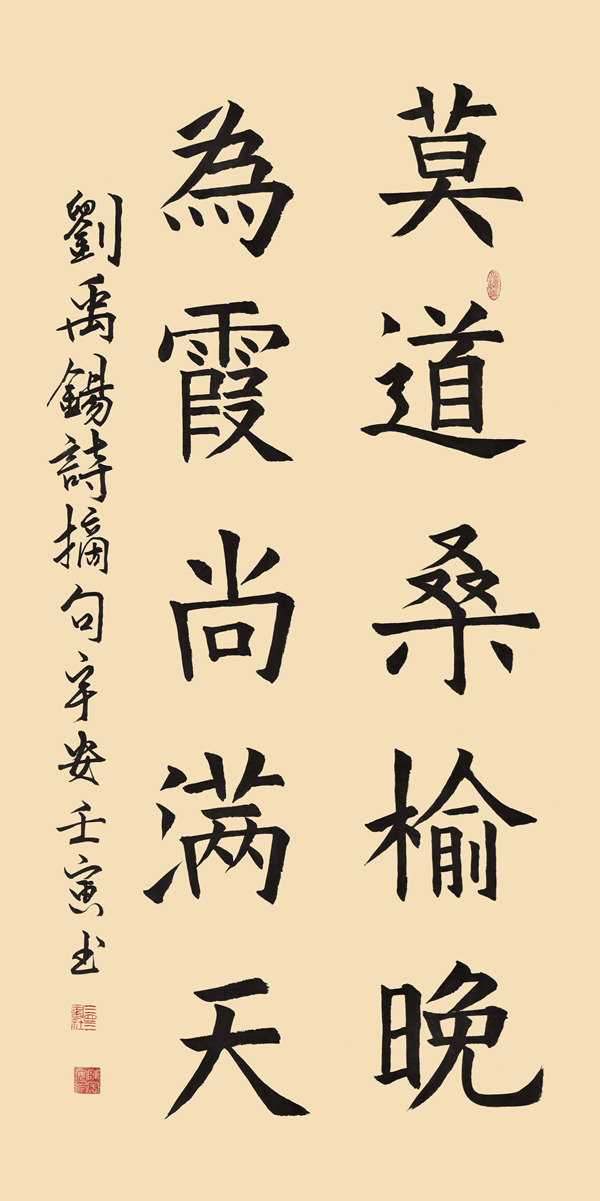 莫道桑榆晚
為霞尚满天
劉禹錫詩摘句宇安壬寅书